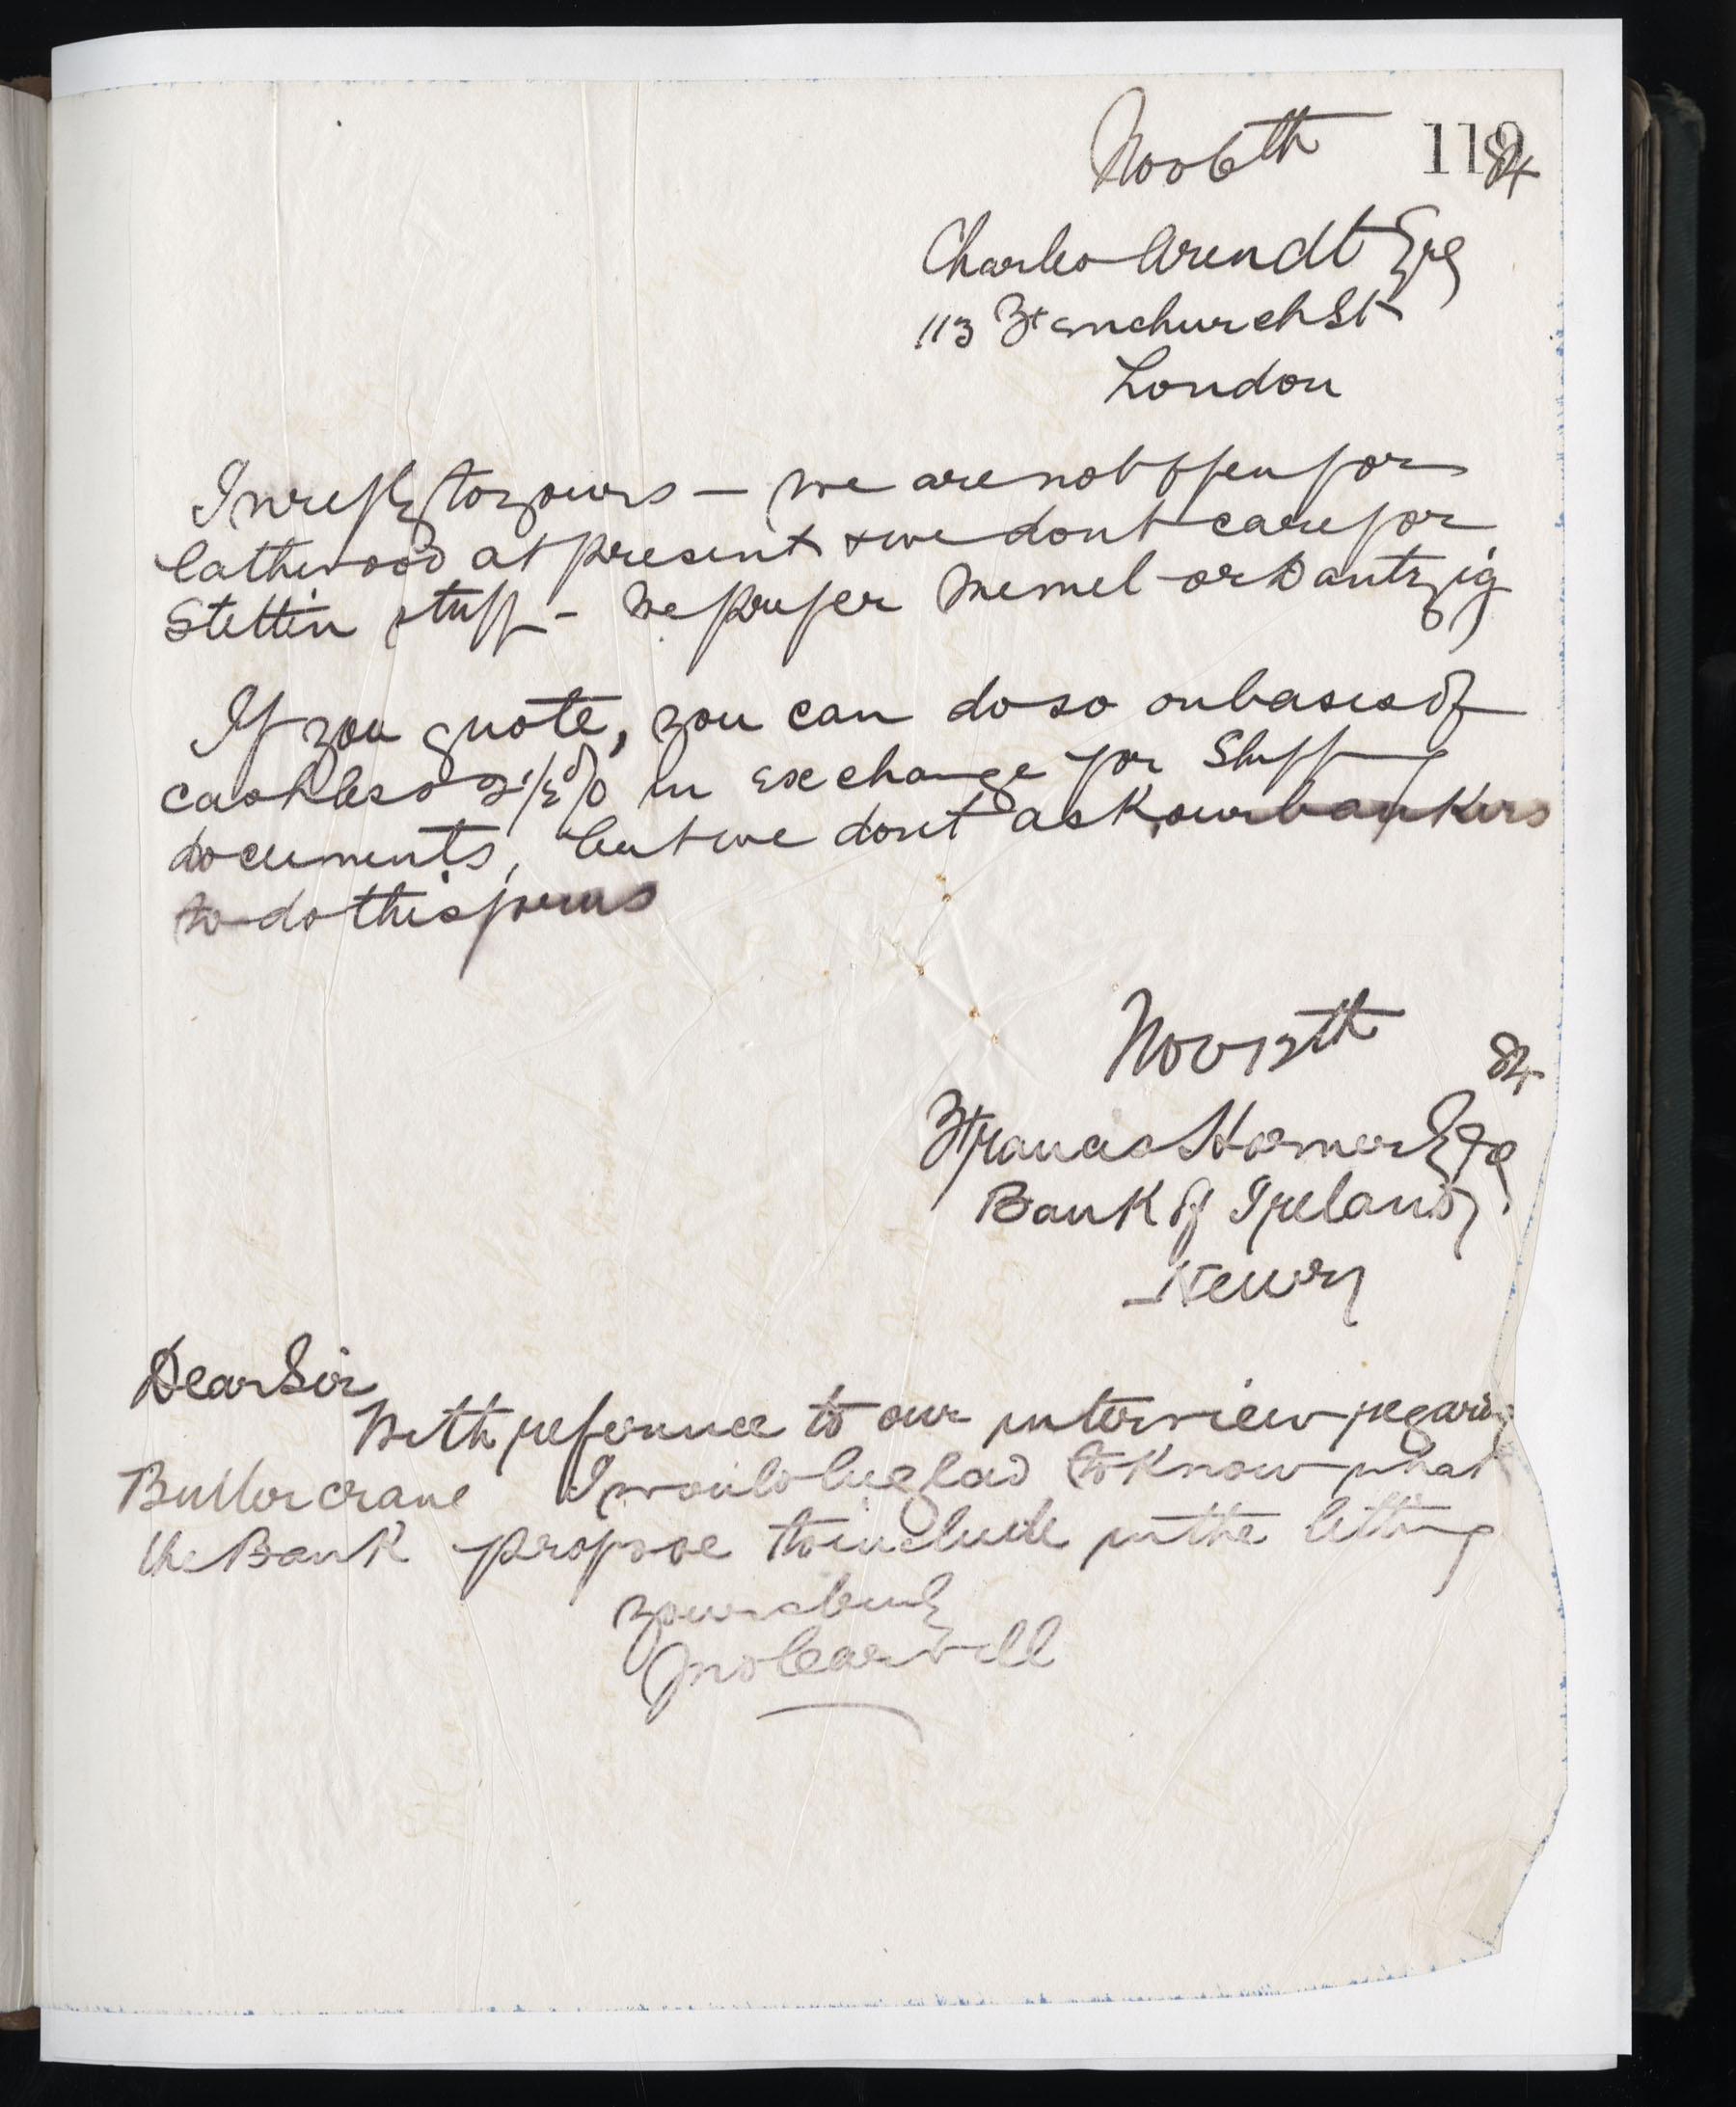 Nov 6th 119 84
Charles Arendt Esq
113 Fenchurch St
London
In reply to yours — we are not open for
lathwood at present & we dont care for
Stettin stuff — We prefer Memel or Dantzig
If you quote, you can do so on basis of
cash less 2½% in exchange for Shipping
documents, but we dont ask our bankers
to do this for us
Nov 12th 84
Francis Horner Esq
Bank of Ireland
Newry
Dear Sir
With reference to our interview regarding
Buttercrane I would be glad to know what
the Bank propose to include in the letting
Yours truly
Jno Carvill